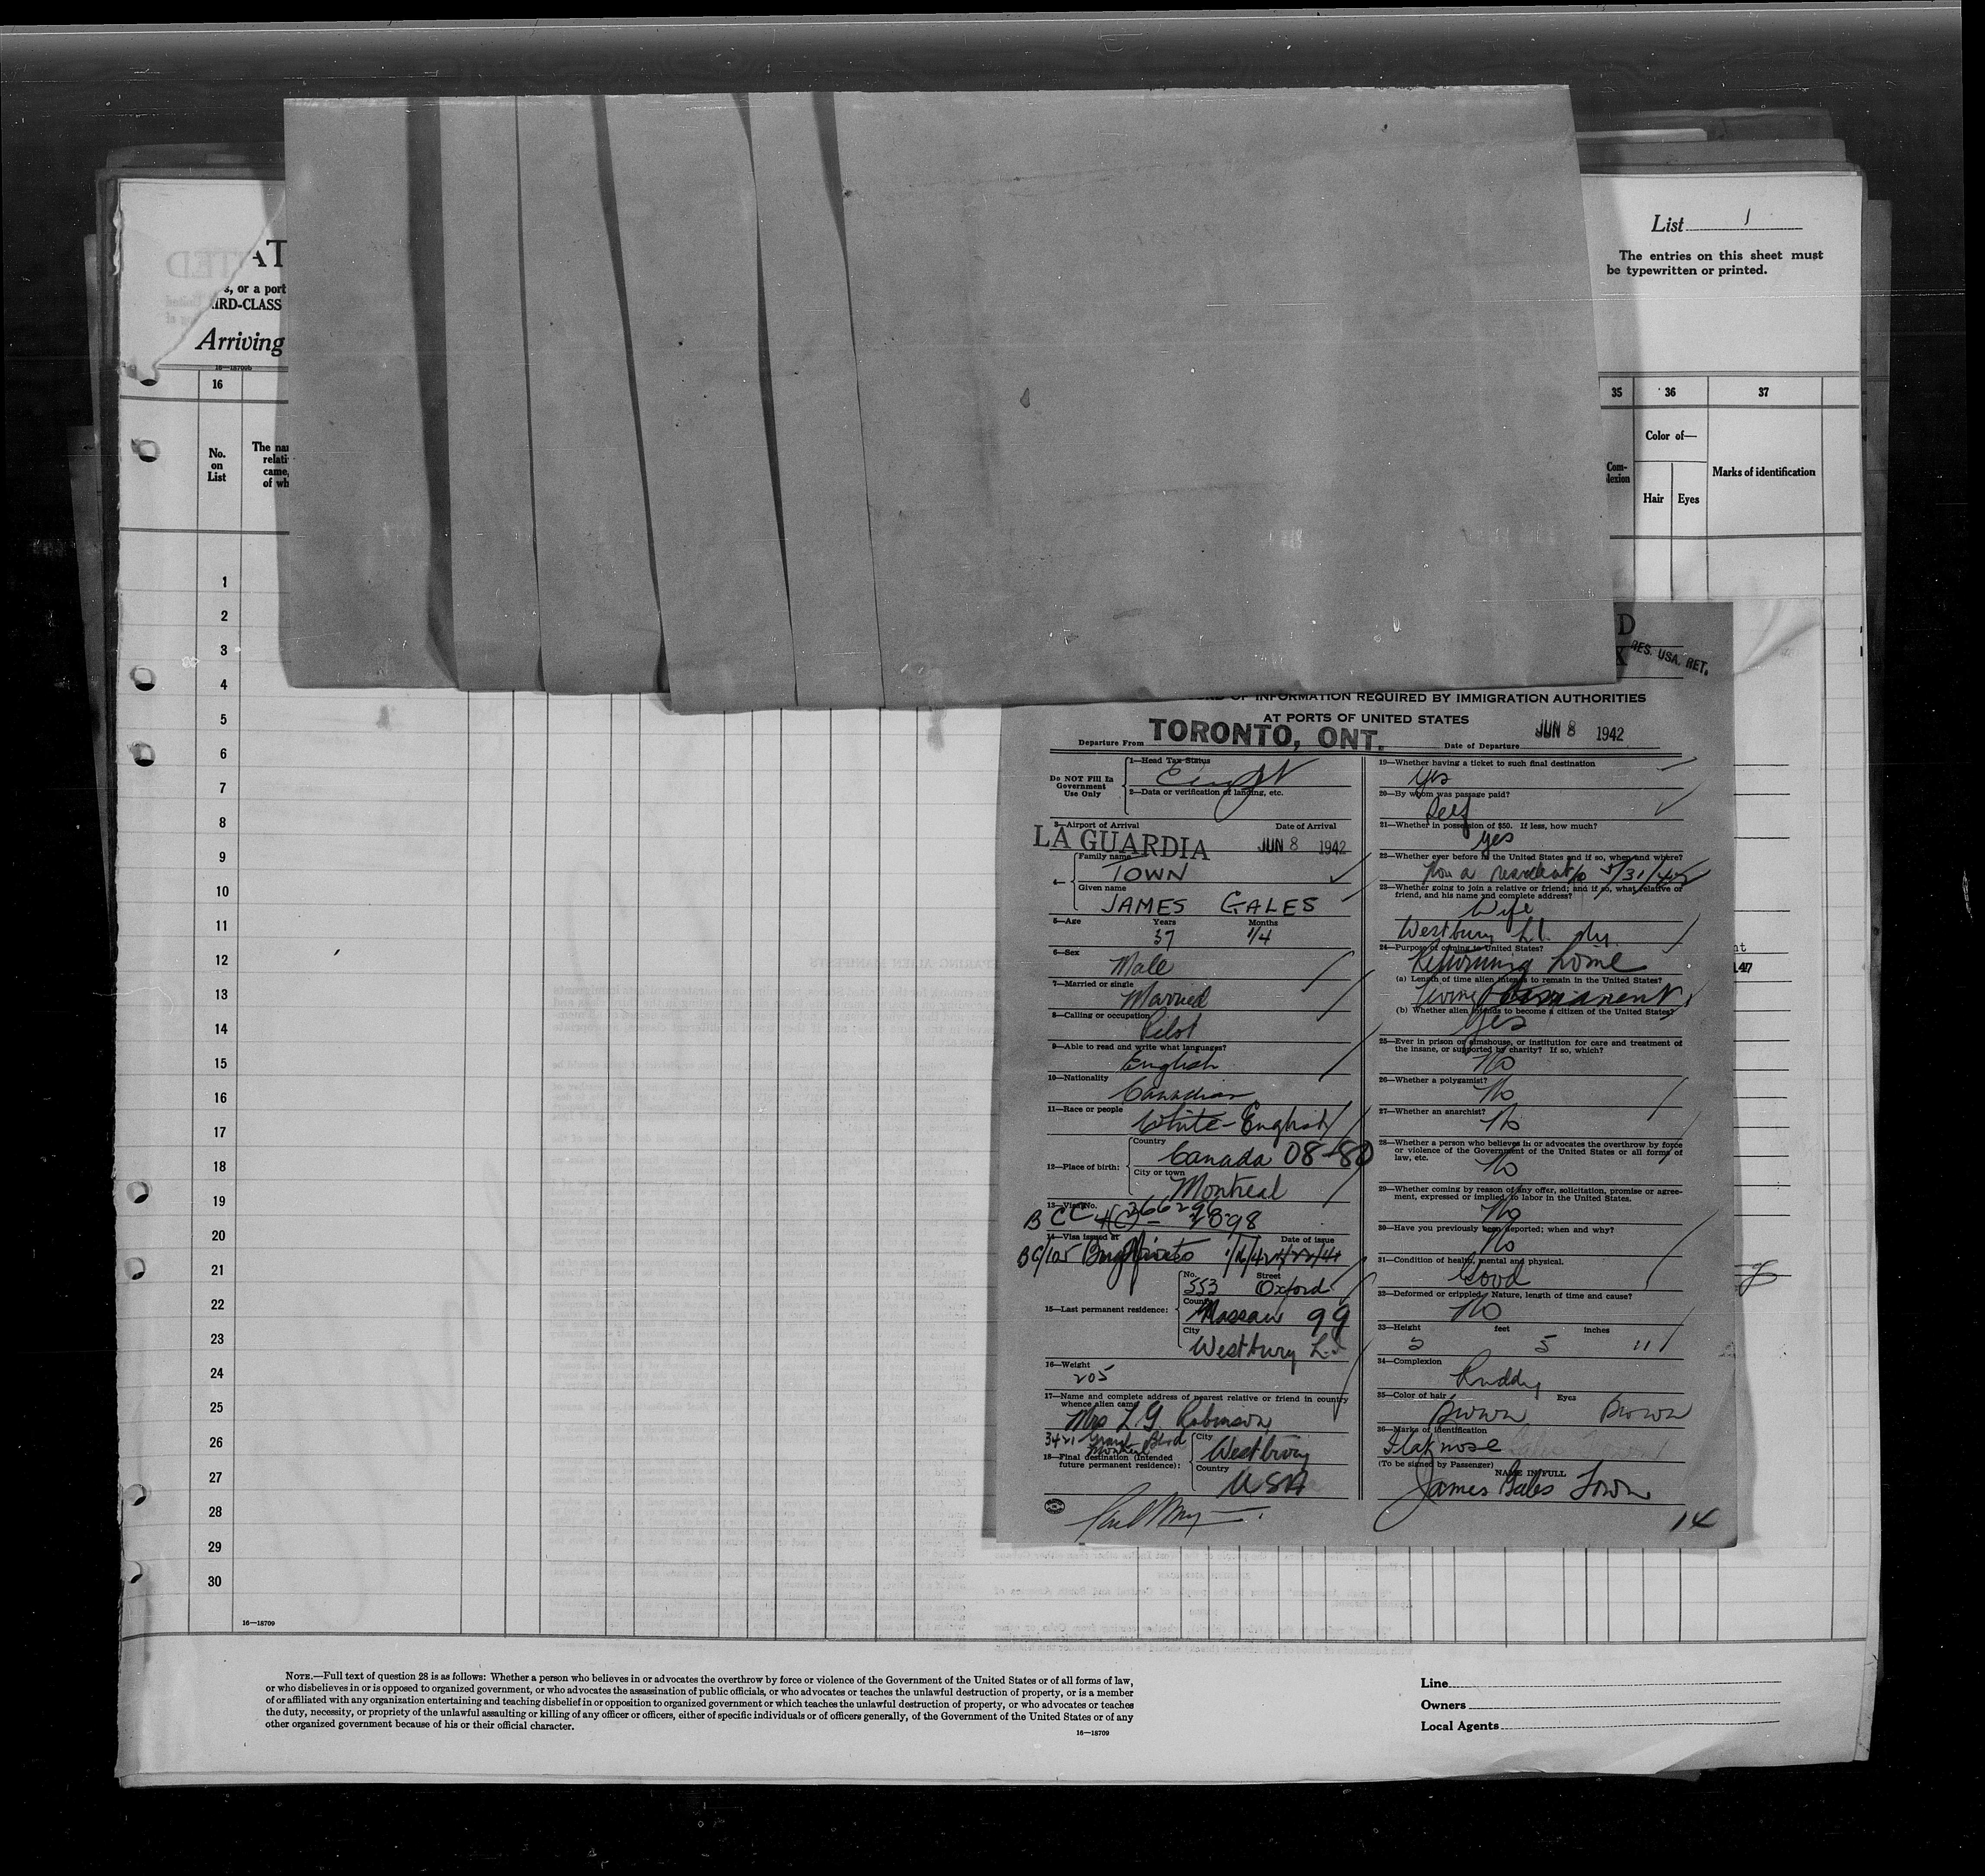 List 1
The entries on this sheet must
be typewritten or printed.
s, or a port
IRD-CLASS
Arriving
16—18709b
16
35 36 37
No.
on
List
Color of—
Hair Eyes
Marks of identification
1
2
3
4
5
6
7
8
9
10
11
12
13
14
15
16
17
18
19
20
21
22
23
24
25
26
27
28
29
30
16—18709
RES. USA. RET.
INFORMATION REQUIRED BY IMMIGRATION AUTHORITIES
AT PORTS OF UNITED STATES
Departure From TORONTO, ONT. Date of Departure JUN 8 1942
Do NOT Fill In
Government
Use Only
1—Head Tax Status
2—Data or verification of landing, etc.
3—Airport of Arrival Date of Arrival
LA GUARDIA JUN 8 1942
4— Family name
TOWN
Given name
JAMES GALES
5—Age Years Months
37 1/4
6—Sex
Male
7—Married or single
Married
8—Calling or occupation
Pilot
9—Able to read and write what languages?
English
10—Nationality
Canadian
11—Race or people
White-English
12—Place of birth: Country
Canada 08-80
City or town
Montreal
13—Visa No.
BCC
14—Visa issued at Date of issue
15—Last permanent residence: No. Street
553 Oxford
County
Nassau 99
City
Westbury L.I.
16—Weight
205
17—Name and complete address of nearest relative or friend in country
whence alien came
Mrs L G Robinson
3421 Grand Blvd
Montreal
18—Final destination (Intended
future permanent residence):
City
Westbury
Country
USA
19—Whether having a ticket to such final destination
Yes
20—By whom was passage paid?
Self
21—Whether in possession of $50. If less, how much?
yes
22—Whether ever before in the United States and if so, when and where?
5/31/42
23—Whether going to join a relative or friend; and if so, what relative or
friend, and his name and complete address?
Wife
Westbury L.I. N.Y.
24—Purpose of coming to United States?
Returning home
(a) Length of time alien intends to remain in the United States?
Permanent
(b) Whether alien intends to become a citizen of the United States?
Yes
25—Ever in prison or almshouse, or institution for care and treatment of
the insane, or supported by charity? If so, which?
No
26—Whether a polygamist?
No
27—Whether an anarchist?
No
28—Whether a person who believes in or advocates the overthrow by force
or violence of the Government of the United States or all forms of
law, etc.
No
29—Whether coming by reason of any offer, solicitation, promise or agree-
ment, expressed or implied, to labor in the United States.
No
30—Have you previously been deported; when and why?
No
31—Condition of health, mental and physical.
Good
32—Deformed or crippled. Nature, length of time and cause?
No
33—Height feet inches
5 11
34—Complexion
Ruddy
35—Color of hair Eyes
Brown Brown
36—Marks of identification
Flat nose
(To be signed by Passenger)
NAME IN FULL
James Gales Town
14
NOTE.—Full text of question 28 is as follows: Whether a person who believes in or advocates the overthrow by force or violence of the Government of the United States or of all forms of law,
or who disbelieves in or is opposed to organized government, or who advocates the assassination of public officials, or who advocates or teaches the unlawful destruction of property, or is a member
of or affiliated with any organization entertaining and teaching disbelief in or opposition to organized government or which teaches the unlawful destruction of property, or who advocates or teaches
the duty, necessity, or propriety of the unlawful assaulting or killing of any officer or officers, either of specific individuals or of officers generally, of the Government of the United States or of any
other organized government because of his or their official character.
16—18709
Line
Owners
Local Agents